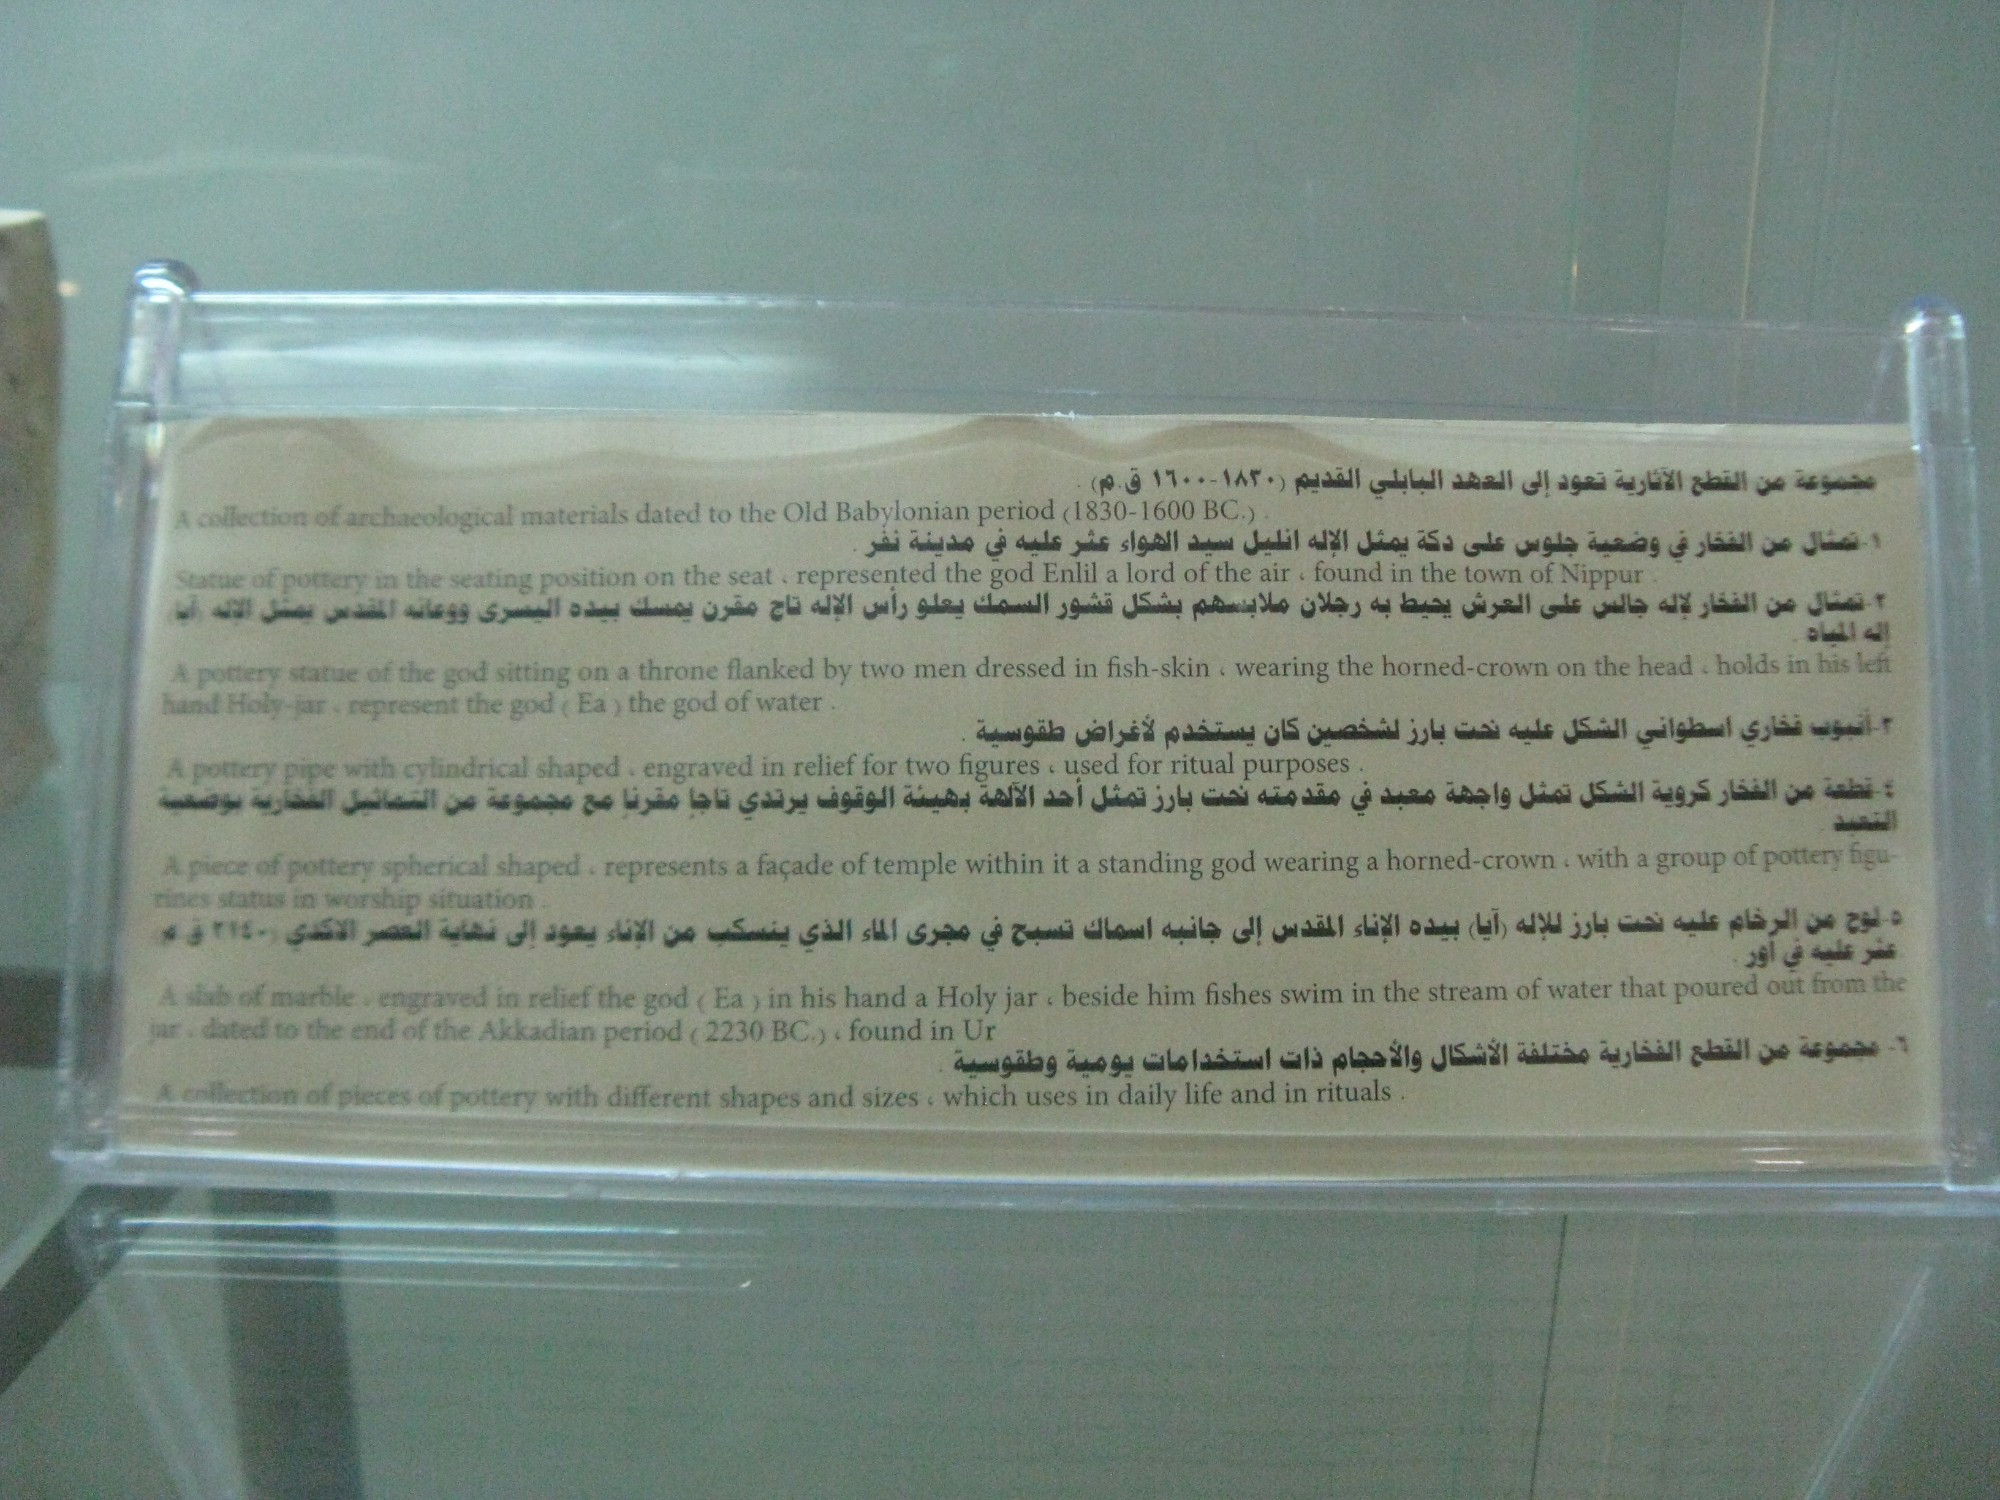 مجموعة من القطع الآثارية تعود إلى العهد البابلي القديم (١٨٣٠-١٦٠٠ ق.م) .
A collection of archaeological materials dated to the Old Babylonian period (1830-1600 BC.) .
١-تمثال من الفخار في وضعية جلوس على دكة يمثل الإله انليل سيد الهواء عثر عليه في مدينة نفر .
Statue of pottery in the seating position on the seat ، represented the god Enlil a lord of the air ، found in the town of Nippur .
٢-تمثال من الفخار لإله جالس على العرش يحيط به رجلان ملابسهم بشكل قشور السمك يعلو رأس الإله تاج مقرن يمسك بيده اليسرى ووعائه المقدس يمثل الاله (آيا)
إله المياه .
A pottery statue of the god sitting on a throne flanked by two men dressed in fish-skin ، wearing the horned-crown on the head ، holds in his left
hand Holy-jar ، represent the god ( Ea ) the god of water .
٣-أنبوب فخاري اسطواني الشكل عليه نحت بارز لشخصين كان يستخدم لأغراض طقوسية .
A pottery pipe with cylindrical shaped ، engraved in relief for two figures ، used for ritual purposes .
٤-قطعة من الفخار كروية الشكل تمثل واجهة معبد في مقدمته نحت بارز تمثل أحد الآلهة بهيئة الوقوف يرتدي تاجا مقرنا مع مجموعة من التماثيل الفخارية بوضعية
التعبد .
A piece of pottery spherical shaped ، represents a façade of temple within it a standing god wearing a horned-crown ، with a group of pottery figu-
rines status in worship situation .
٥-لوح من الرخام عليه نحت بارز للإله (آيا) بيده الإناء المقدس إلى جانبه اسماك تسبح في مجرى الماء الذي ينسكب من الإناء يعود إلى نهاية العصر الاكدي ق م
عثر عليه في أور .
A slab of marble ، engraved in relief the god ( Ea ) in his hand a Holy jar ، beside him fishes swim in the stream of water that poured out from the
jar ، dated to the end of the Akkadian period ( 2230 BC.) ، found in Ur
٦- مجموعة من القطع الفخارية مختلفة الأشكال والأحجام ذات استخدامات يومية وطقوسية .
A collection of pieces of pottery with different shapes and sizes ، which uses in daily life and in rituals .